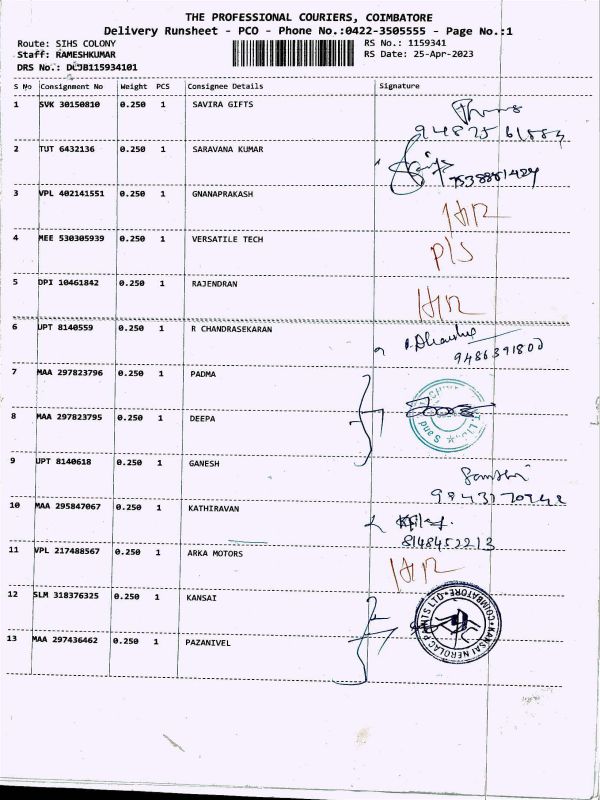 THE PROFESSIONAL COURIERS, COIMBATORE
Delivery Runsheet - PCO - Phone No.:0422-3505555 - Page No.:1
Route: SIHS COLONY RS No.: 1159341
Staff: RAMESHKUMAR RS Date: 25-Apr-2023
DRS No.: DLJB115934101
S No Consignment No Weight PCS Consignee Details Signature
1 SVK 30150810 0.250 1 SAVIRA GIFTS
2 TUT 6432136 0.250 1 SARAVANA KUMAR
3 VPL 402141551 0.250 1 GNANAPRAKASH
4 MEE 530305939 0.250 1 VERSATILE TECH
P/S
5 DPI 10461842 0.250 1 RAJENDRAN
6 UPT 8140559 0.250 1 R CHANDRASEKARAN
9486391800
7 MAA 297823796 0.250 1 PADMA
8 MAA 297823795 0.250 1 DEEPA
9 UPT 8140618 0.250 1 GANESH
10 MAA 295847067 0.250 1 KATHIRAVAN
8148452213
11 VPL 217488567 0.250 1 ARKA MOTORS
12 SLM 318376325 0.250 1 KANSAI
KANSAI NEROLAC PAINTS LTD. COIMBATORE
13 MAA 297436462 0.250 1 PAZANIVEL